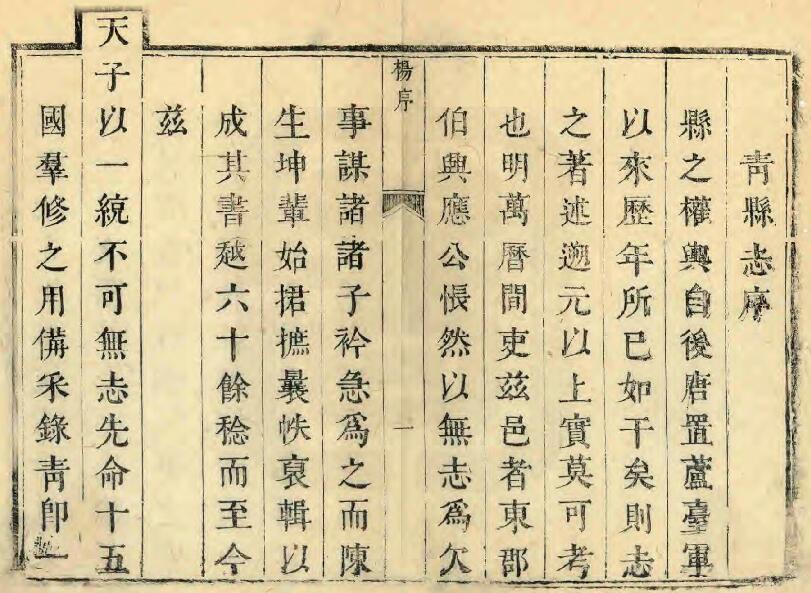 青縣志序
縣之權輿自後唐置蘆臺軍
以來歷年所已如干矣則志
之著述遡元以上實莫可考
也明萬曆間吏茲邑者東郡
伯興應公悵然以無志為欠
楊序
一
事謀諸諸子衿急爲之而陳
生坤輩始捃摭曩帙裒輯以
成其書越六十餘稔而至今
兹
天子以一統不可無志先命十五
國羣修之用備采錄青卽一